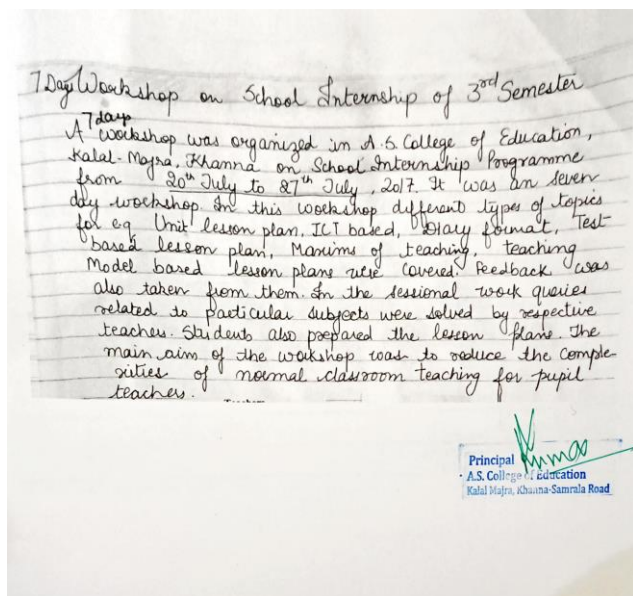 7 Day Workshop on School Internship of 3rd Semester
7 days
A workshop was organized in A.S. College of Education,
Kalal-Majra, Khanna on School Internship Programme
from 20th July to 27th July, 2017. It was an seven
day workshop. In this workshop different types of topics
for eg Unit lesson plan, ICT based, Diary format, Test
based lesson plan, Maxims of teaching, teaching
Model based lesson plans were covered. Feedback was
also taken from them. In the sessional work queries
related to particular subjects were solved by respective
teachers. Students also prepared the lesson plans. The
main aim of the workshop was to reduce the comple-
xities of normal classroom teaching for pupil
teachers.
Kumar
Principal
A.S. College of Education
Kalal Majra, Khanna-Samrala Road